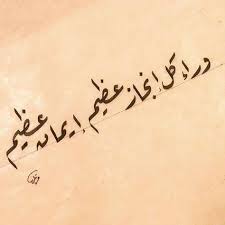 وراء كل إنجاز عظيم إيمان عظيم